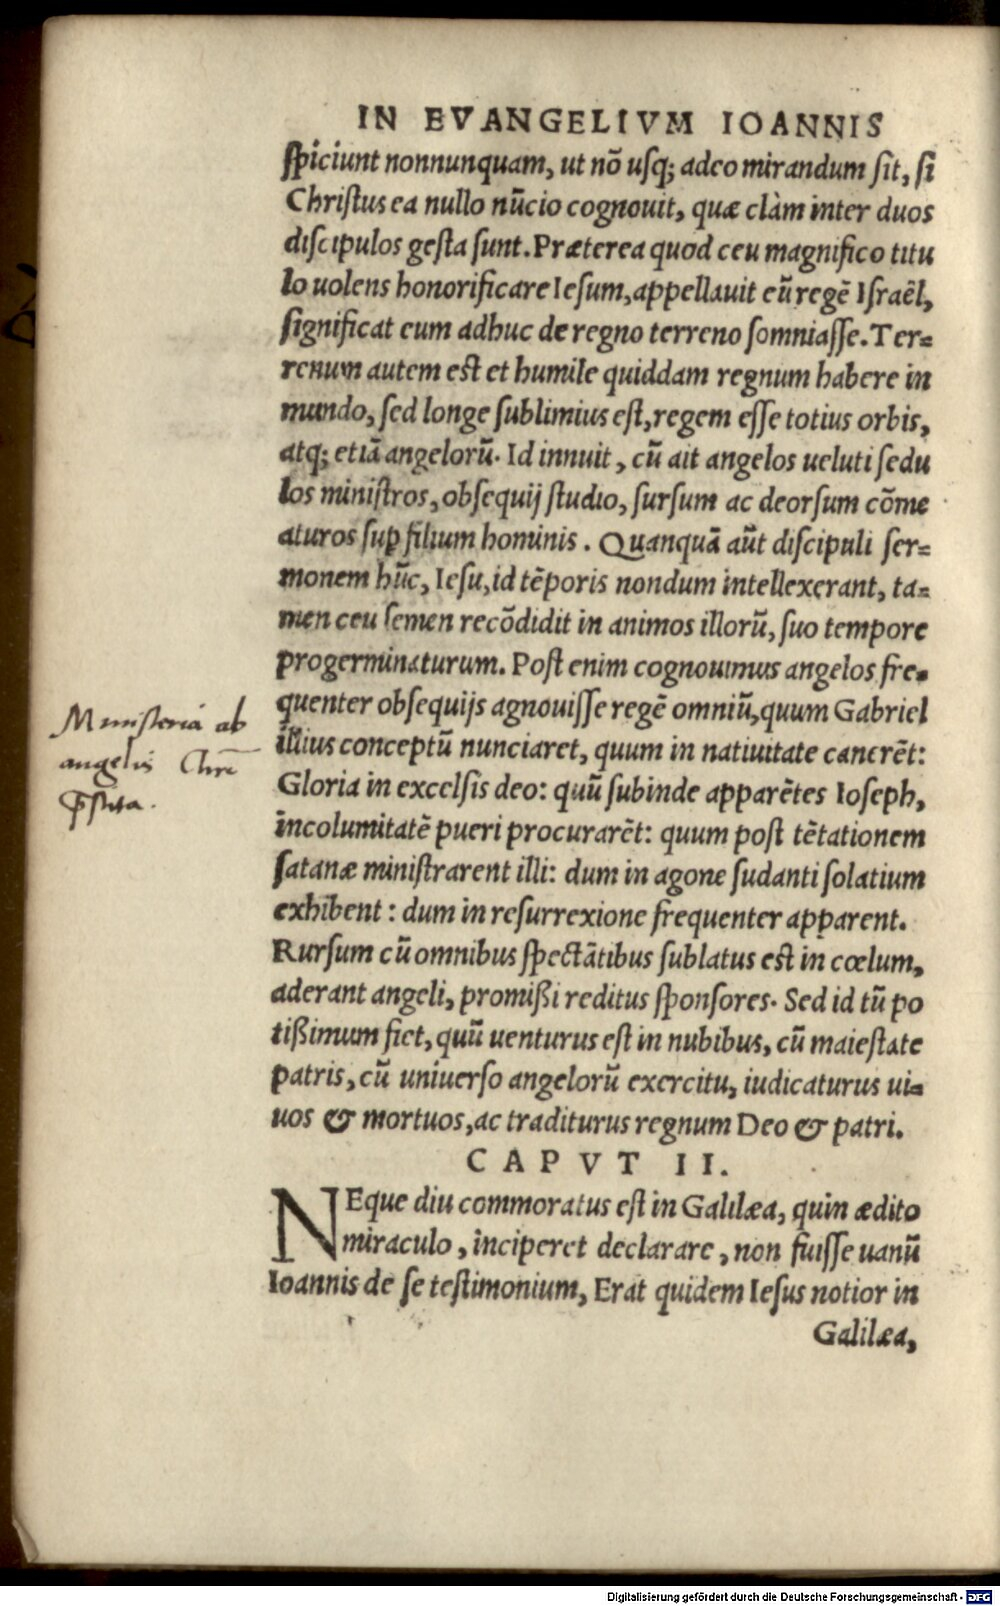 IN EVANGELIVM IOANNIS
ſpiciunt nonnunquam, ut nõ uſq; adeo mirandum ſit, ſi
Chriſtus ea nullo nũcio cognouit, quæ clàm inter duos
diſcipulos geſta ſunt. Præterea quod ceu magnifico titu
lo uolens honorificare Ieſum, appellauit eũ regẽ Iſraẽl,
ſignificat eum adhuc de regno terreno ſomniaſſe. Ter-
renum autem eſt et humile quiddam regnum habere in
mundo, ſed longe ſublimius eſt, regem eſſe totius orbis,
atq; etiã angelorũ. Id innuit, cũ ait angelos ueluti ſedu
los miniſtros, obſequij ſtudio, ſurſum ac deorſum cõme
aturos ſuꝑ filium hominis. Quanquã aũt diſcipuli ſer-
monem hũc, Ieſu, id tẽporis nondum intellexerant, ta-
men ceu ſemen recõdidit in animos illorũ, ſuo tempore
progerminaturum. Poſt enim cognouimus angelos fre-
quenter obſequijs agnouiſſe regẽ omniũ, quum Gabriel
illius conceptũ nunciaret, quum in natiuitate canerẽt:
Gloria in excelſis deo: quũ ſubinde apparẽtes Ioſeph,
incolumitatẽ pueri procurarẽt: quum poſt tẽtationem
ſatanæ miniſtrarent illi: dum in agone ſudanti ſolatium
exhibent: dum in reſurrexione frequenter apparent.
Rurſum cũ omnibus ſpectãtibus ſublatus eſt in cœlum,
aderant angeli, promißi reditus ſponſores. Sed id tũ po
tißimum fiet, quũ uenturus eſt in nubibus, cũ maieſtate
patris, cũ uniuerſo angelorũ exercitu, iudicaturus ui-
uos & mortuos, ac traditurus regnum Deo & patri.
Miniſteria ab
angelis Chrõ
p̃ſtita.
CAPVT II.
NEque diu commoratus eſt in Galilæa, quin ædito
miraculo, inciperet declarare, non fuiſſe uanũ
Ioannis de ſe teſtimonium, Erat quidem Ieſus notior in
Galilæa,
Digitalisierung gefördert durch die Deutsche Forschungsgemeinschaft - DFG